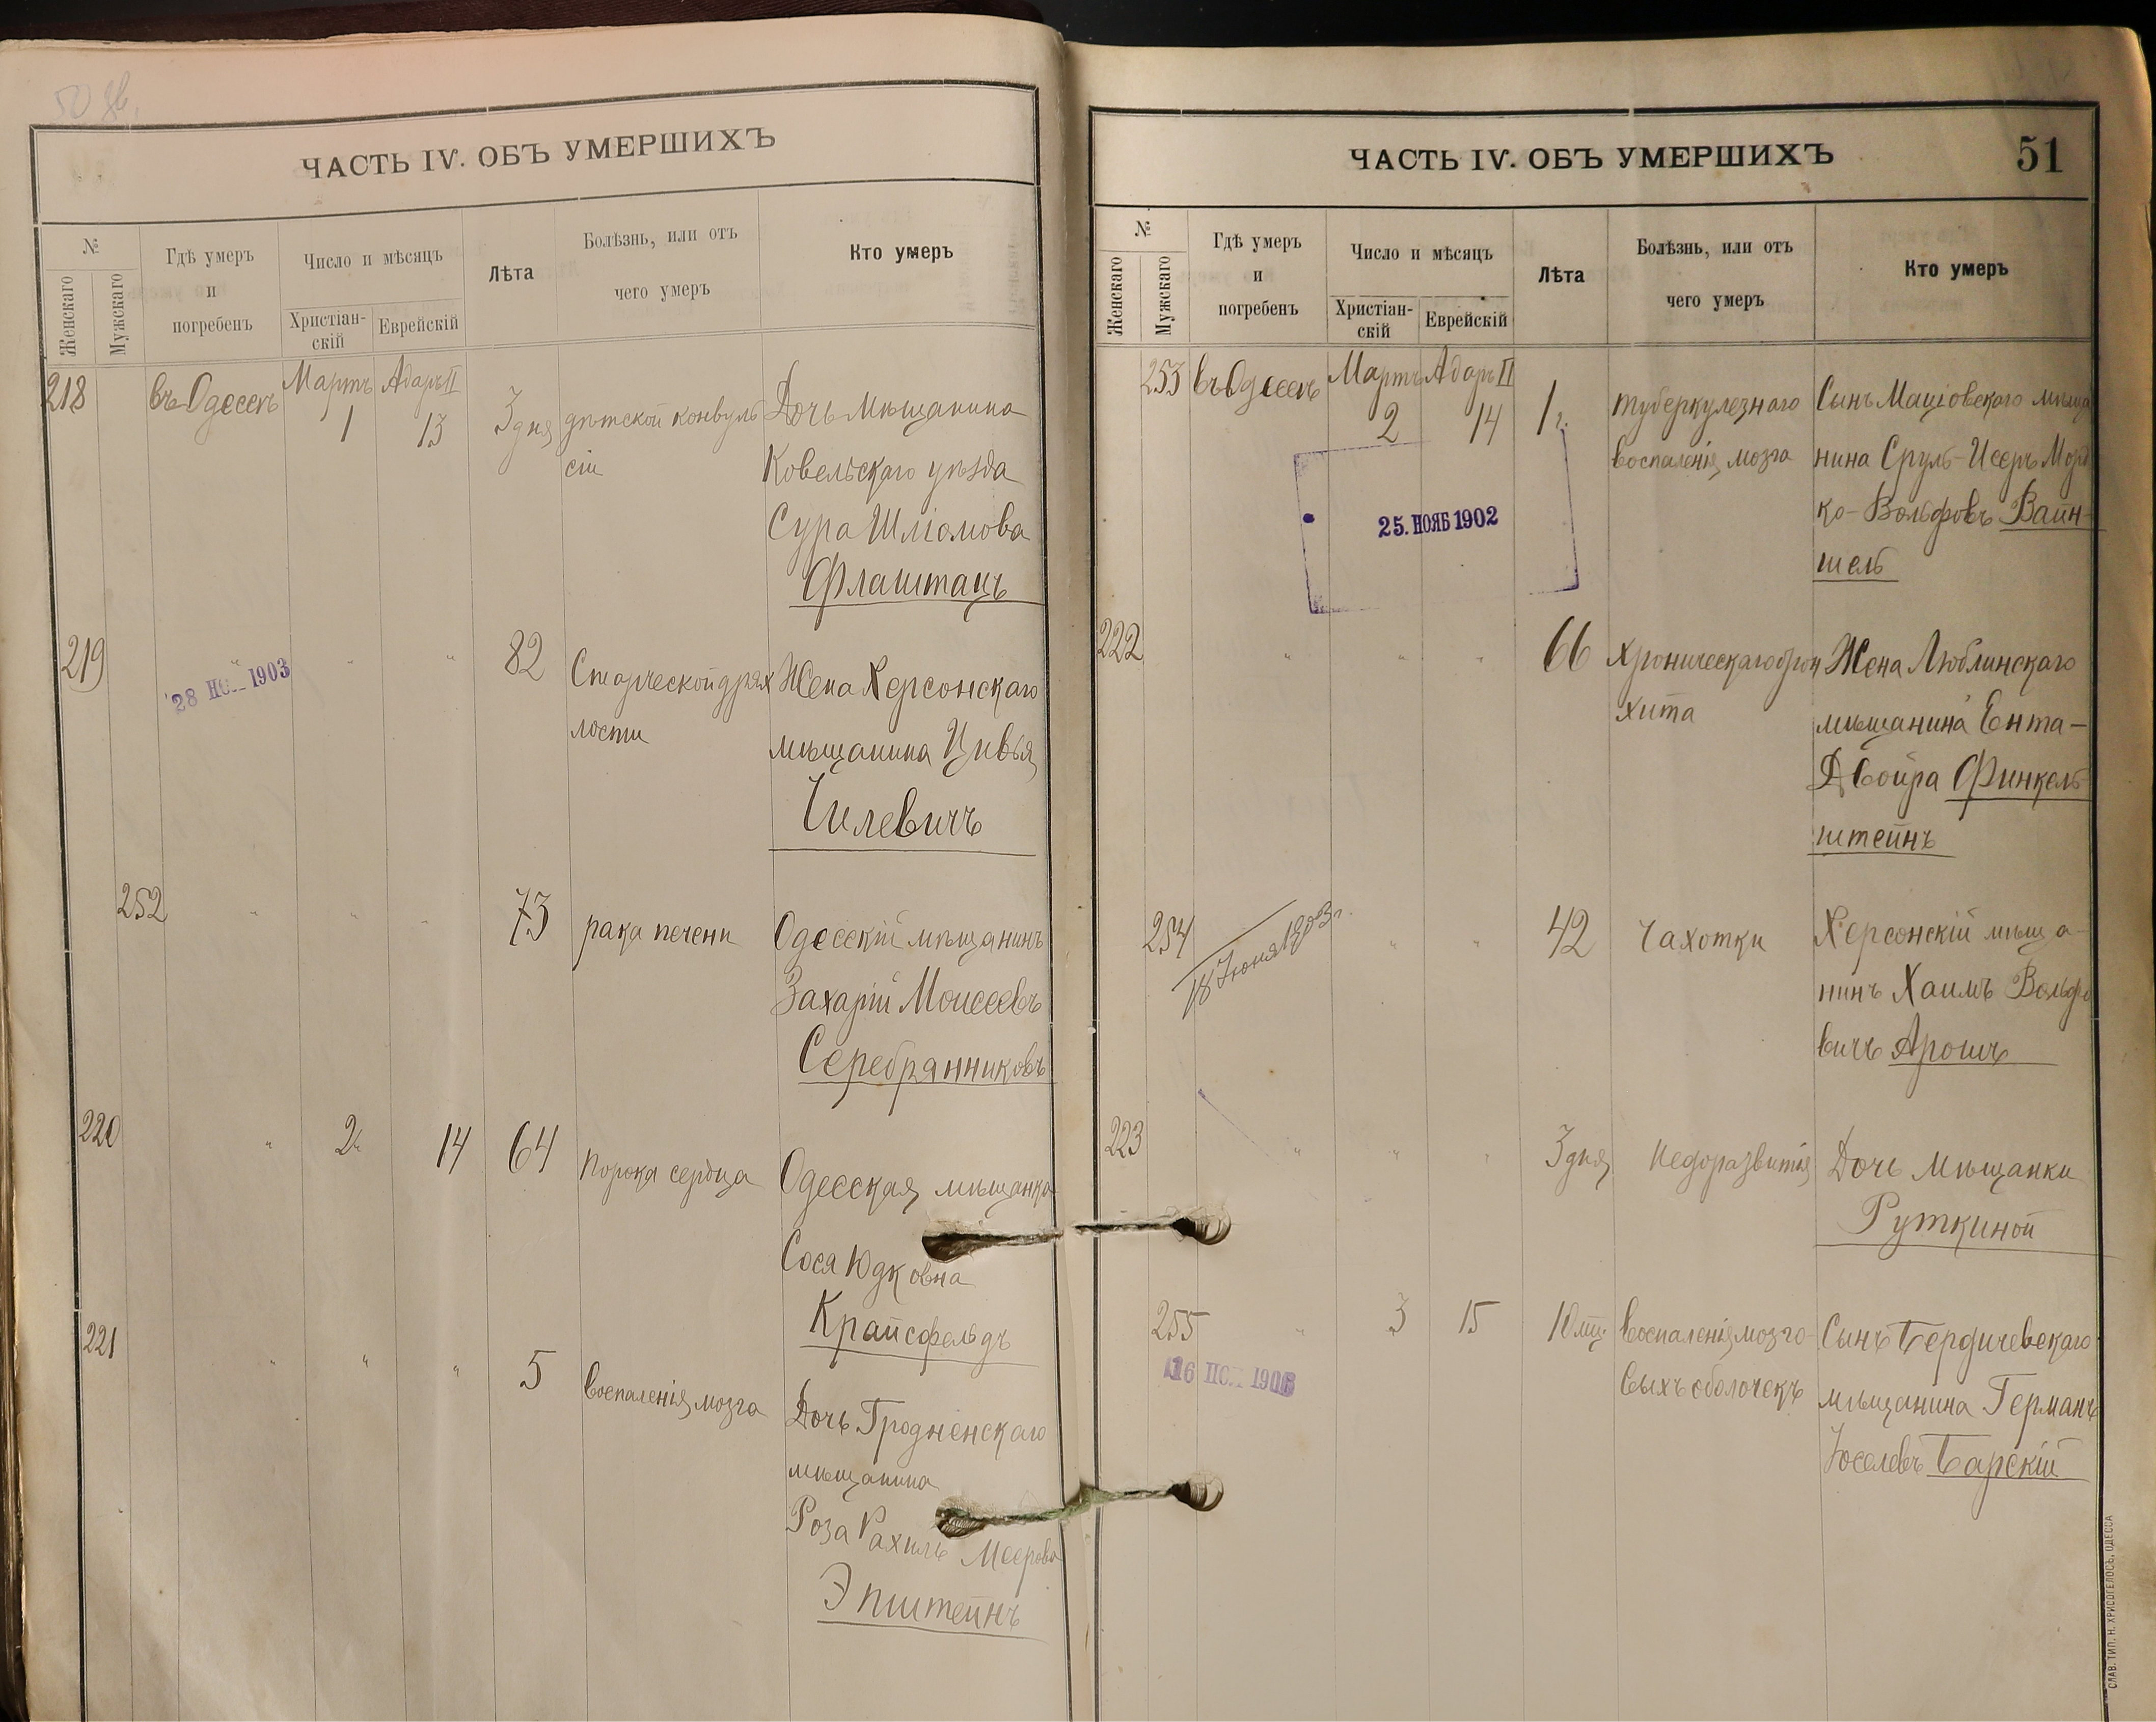 50 об.
ЧАСТЬ IV. ОБЪ УМЕРШИХЪ
№
Женскаго
Мужскаго
Гдѣ умеръ
и
погребенъ
Число и мѣсяцъ
Христіан-
скій
Еврейскій
Лѣта
Болѣзнь, или отъ
чего умеръ
Кто умеръ
218 въ Одессѣ Мартъ Адаръ II
1 13 3 дня дѣтской конвуль Дочь мѣщанина
сіи Ковельскаго уѣзда
Сура Шліомова
Флаштанъ
219 " " " 82 Старческой дрях Жена Херсонскаго
28 1903
лости мѣщанина Цивья
Чилевичъ
252 " " " 73 рака печени Одесскій мѣщанинъ
Захарій Моисеевъ
Серебрянниковъ
220 " 2 14 64 порока сердца Одесская мѣщанка
Сося Юдковна
Крайсфельдъ
221 " " " 5 воспаленія мозга Дочь Гродненскаго
мѣщанина
Роза Рахиль Меерова
Эпштейнъ
ЧАСТЬ IV. ОБЪ УМЕРШИХЪ 51
№
Женскаго
Мужскаго
Гдѣ умеръ
и
погребенъ
Число и мѣсяцъ
Христіан-
скій
Еврейскій
Лѣта
Болѣзнь, или отъ
чего умеръ
Кто умеръ
253 въ Одессѣ Мартъ Адаръ II
2 14 1 г. туберкулезнаго Сынъ Маціовскаго мѣща
воспаленія мозга нина Сруль-Исеръ Морд
25. НОЯБ 1902
ко-Вольфовъ Вайн-
шель
222 " " " 66 хроническаго брон Жена Люблинскаго
хита мѣщанина Ента-
Двойра Финкель
штейнъ
254 " " 42 Чахотки Херсонскій мѣща-
18 Іюня 1903 г.
нинъ Хаимъ Вольфо
вичъ Арошъ
223 " " " 3 дня Недоразвитія Дочь мѣщанки
Руткиной
255 " 3 15 10 мц. воспаленія мозго- Сынъ Бердичевскаго
выхъ оболочекъ мѣщанина Германъ
Іоселевъ Барскій
СЛАВ. ТИП. Н. ХРИСОГЕЛОСЪ, ОДЕССА